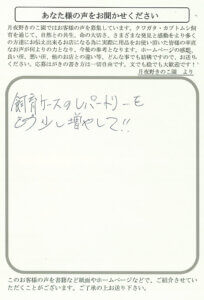 あなた様の声をお聞かせください
月夜野きのこ園ではお客様の声を募集しています。クワガタ・カブトムシ飼
育を通じて、自然との共生、命の大切さ、さまざまな発見と感動をより多く
の方達にお伝え出来るお店になる為に実際に用品をお使い頂いた皆様の率直
なお声が何よりの力となり、今後の参考となります。クワガタの感想、
良い所、悪い所、他のお店との違い等、どんな事でも結構ですので、お送り
下さい。応募はがきの書き方は一切自由です。文でも絵でも大歓迎です!
月夜野きのこ園 より
飼育ケースのレパートリーを
もう少し増やして!!
このお客様の声を書籍など紙面やホームページなどで、ご紹介させてい
ただくことがございます。ご了承の上お送り下さい。